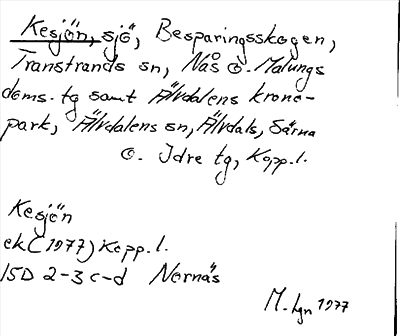 Kesjön, sjö, Besparingsskogen,
Transtrands sn, Nås o. Malungs
doms. tg samt Älvdalens krono-
park, Älvdalens sn, Älvdals, Särna
o. Idre tg, Kopp. l.
Kesjön
ek (1977) Kopp. l.
15D 2-3 c-d Nornäs
M. Lgn 1977